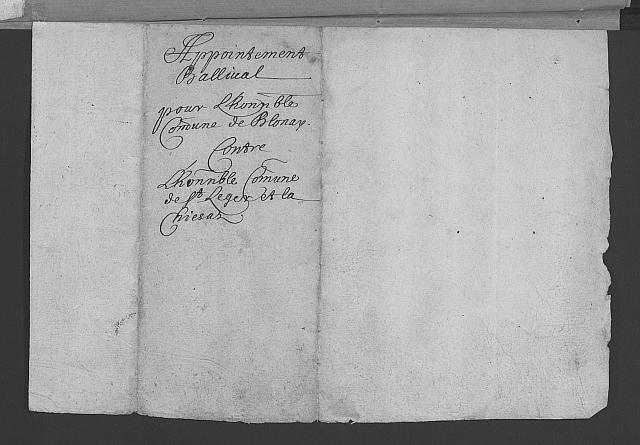 Appointement
Ballival
pour Lhonn̄ble
Com̄une de Blonay.
Contre
Lhonn̄ble Com̄une
de St Leger et la
Chiesaz